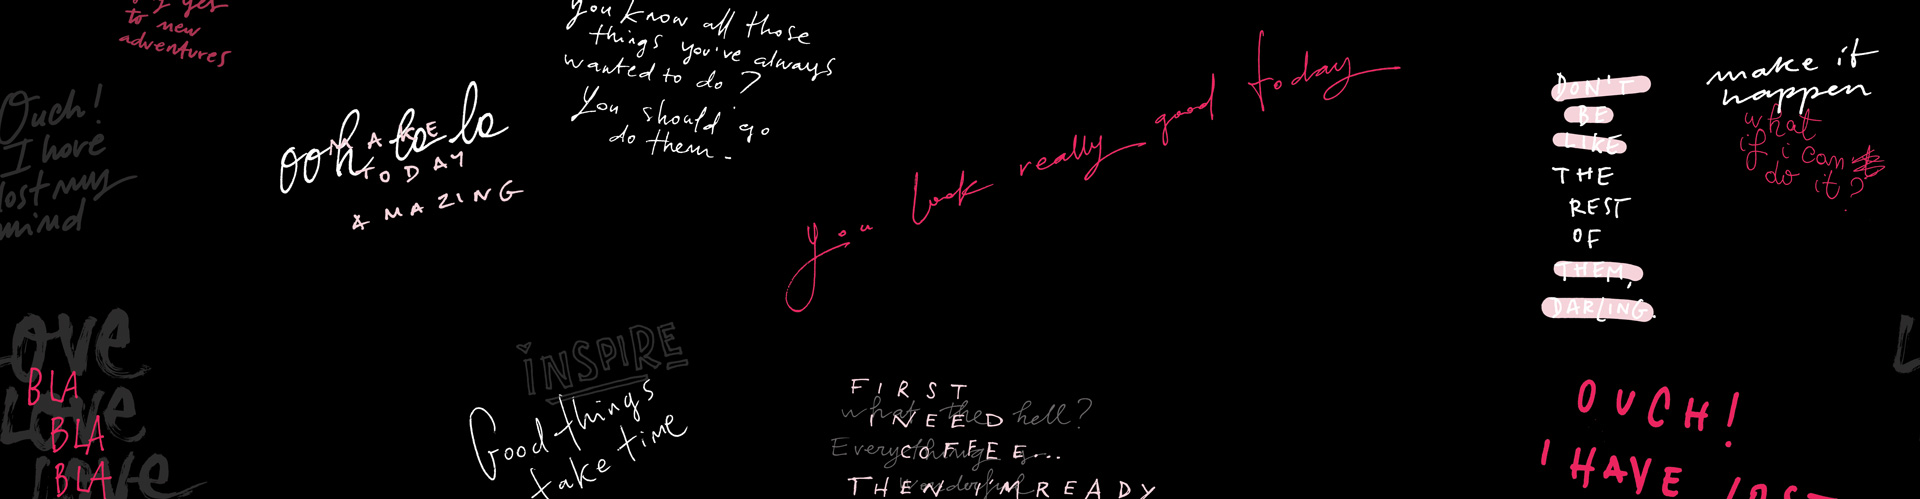 yes
to new
adventures
Ouch!
I have
lost my
mind
ooh la la
MAKE
TODAY
AMAZING
you know all those
things you've always
wanted to do?
You should go
do them.
you look really good today
DON'T
BE
LIKE
THE
REST
OF
THEM,
DARLING.
make it
happen
what
if i can
do it?
Love
Love
Love
BLA
BLA
BLA
INSPIRE
Good things
take time
FIRST
I NEED
COFFEE...
THEN I'M READY
what the hell?
Everything is
wonderful
OUCH!
I HAVE LOST